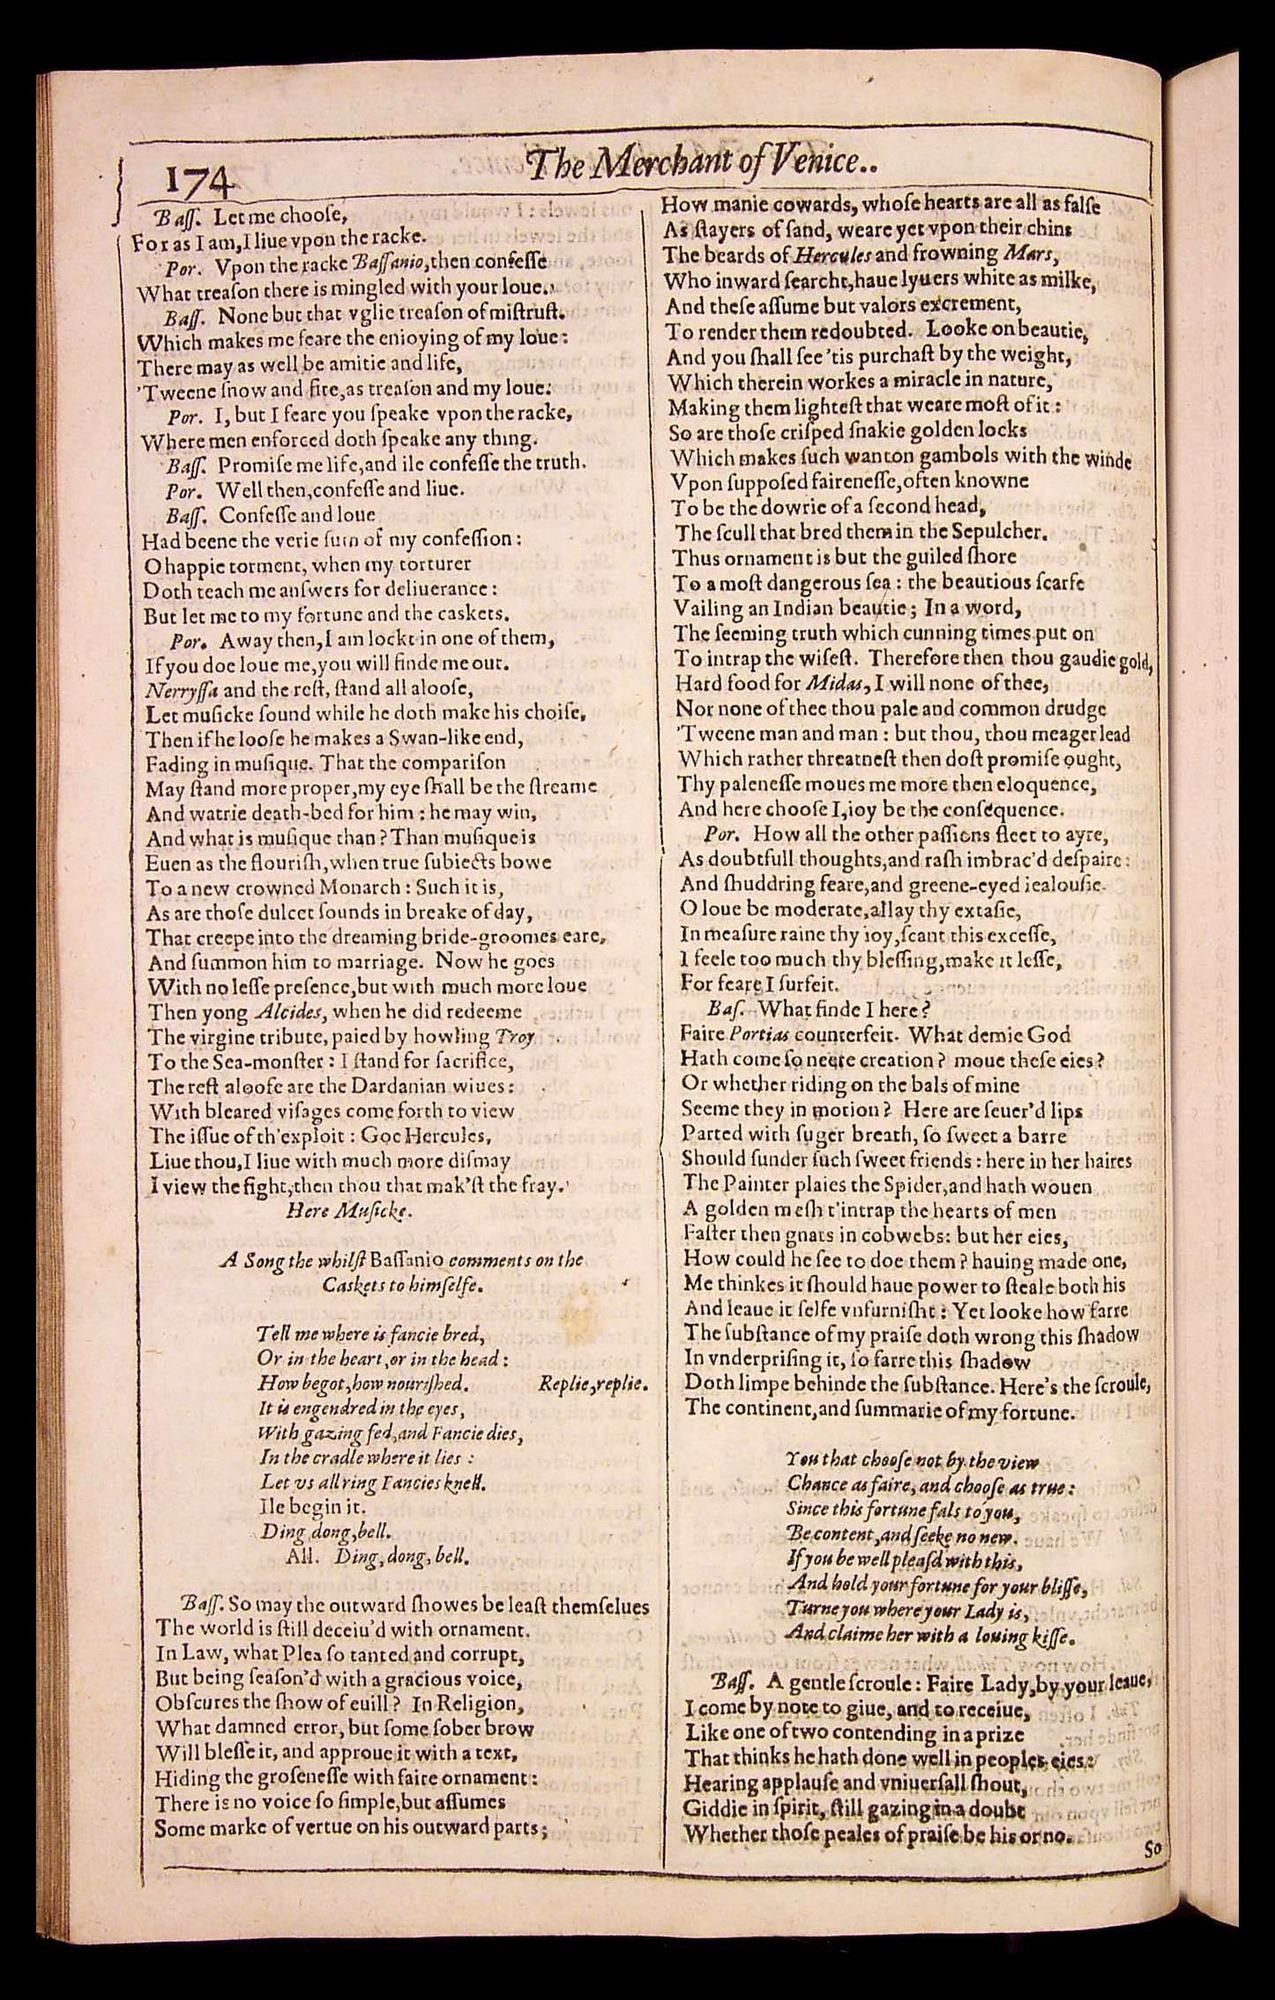 174
The Merchant of Venice..
Baſſ. Let me chooſe,
For as I am, I liue vpon the racke.
Por. Vpon the racke Baſſanio, then confeſſe
What treaſon there is mingled with your loue.
Baſſ. None but that vglie treaſon of miſtruſt.
Which makes me feare the enioying of my loue:
There may as well be amitie and life,
'Tweene ſnow and fire, as treaſon and my loue.
Por. I, but I feare you ſpeake vpon the racke,
Where men enforced doth ſpeake any thing.
Baſſ. Promiſe me life, and ile confeſſe the truth.
Por. Well then, confeſſe and liue.
Baſſ. Confeſſe and loue
Had beene the verie ſum of my confeſſion:
O happie torment, when my torturer
Doth teach me anſwers for deliuerance:
But let me to my fortune and the caskets.
Por. Away then, I am lockt in one of them,
If you doe loue me, you will finde me out.
Nerryſſa and the reſt, ſtand all alooſe,
Let muſicke ſound while he doth make his choiſe,
Then if he looſe he makes a Swan-like end,
Fading in muſique. That the compariſon
May ſtand more proper, my eye ſhall be the ſtreame
And watrie death-bed for him: he may win,
And what is muſique than? Than muſique is
Euen as the flouriſh, when true ſubiects bowe
To a new crowned Monarch: Such it is,
As are thoſe dulcet ſounds in breake of day,
That creepe into the dreaming bride-groomes eare,
And ſummon him to marriage. Now he goes
With no leſſe preſence, but with much more loue
Then yong Alcides, when he did redeeme
The virgine tribute, paied by howling Troy
To the Sea-monſter: I ſtand for ſacrifice,
The reſt alooſe are the Dardanian wiues:
With bleared viſages come forth to view
The iſſue of th'exploit: Goe Hercules,
Liue thou, I liue with much more diſmay
I view the fight, then thou that mak'ſt the fray.
Here Muſicke.
A Song the whilſt Baſſanio comments on the
Caskets to himſelfe.
Tell me where is fancie bred,
Or in the heart, or in the head:
How begot, how nouriſhed. Replie, replie.
It is engendred in the eyes,
With gazing fed, and Fancie dies,
In the cradle where it lies:
Let vs all ring Fancies knell.
Ile begin it.
Ding dong, bell.
All. Ding, dong, bell.
Baſſ. So may the outward ſhowes be leaſt themſelues
The world is ſtill deceiu'd with ornament.
In Law, what Plea ſo tanted and corrupt,
But being ſeaſon'd with a gracious voice,
Obſcures the ſhow of euill? In Religion,
What damned error, but ſome ſober brow
Will bleſſe it, and approue it with a text,
Hiding the groſeneſſe with faire ornament:
There is no voice ſo ſimple, but aſſumes
Some marke of vertue on his outward parts;
How manie cowards, whoſe hearts are all as falſe
As ſtayers of ſand, weare yet vpon their chins
The beards of Hercules and frowning Mars,
Who inward ſearcht, haue lyuers white as milke,
And theſe aſſume but valors excrement,
To render them redoubted. Looke on beautie,
And you ſhall ſee 'tis purchaſt by the weight,
Which therein workes a miracle in nature,
Making them lighteſt that weare moſt of it:
So are thoſe criſped ſnakie golden locks
Which makes ſuch wanton gambols with the winde
Vpon ſuppoſed faireneſſe, often knowne
To be the dowrie of a ſecond head,
The ſcull that bred them in the Sepulcher.
Thus ornament is but the guiled ſhore
To a moſt dangerous ſea: the beautious ſcarfe
Vailing an Indian beautie; In a word,
The ſeeming truth which cunning times put on
To intrap the wiſeſt. Therefore then thou gaudie gold,
Hard food for Midas, I will none of thee,
Nor none of thee thou pale and common drudge
'Tweene man and man: but thou, thou meager lead
Which rather threatneſt then doſt promiſe ought,
Thy paleneſſe moues me more then eloquence,
And here chooſe I, ioy be the conſequence.
Por. How all the other paſſions fleet to ayre,
As doubtfull thoughts, and raſh imbrac'd deſpaire:
And ſhuddring feare, and greene-eyed iealouſie.
O loue be moderate, allay thy extaſie,
In meaſure raine thy ioy, ſcant this exceſſe,
I feele too much thy bleſſing, make it leſſe,
For feare I ſurfeit.
Baſ. What finde I here?
Faire Portias counterfeit. What demie God
Hath come ſo neere creation? moue theſe eies?
Or whether riding on the bals of mine
Seeme they in motion? Here are ſeuer'd lips
Parted with ſuger breath, ſo ſweet a barre
Should ſunder ſuch ſweet friends: here in her haires
The Painter plaies the Spider, and hath wouen
A golden meſh t'intrap the hearts of men
Faſter then gnats in cobwebs: but her eies,
How could he ſee to doe them? hauing made one,
Me thinkes it ſhould haue power to ſteale both his
And leaue it ſelfe vnfurniſht: Yet looke how farre
The ſubſtance of my praiſe doth wrong this ſhadow
In vnderpriſing it, ſo farre this ſhadow
Doth limpe behinde the ſubſtance. Here's the ſcroule,
The continent, and ſummarie of my fortune.
You that chooſe not by the view
Chance as faire, and chooſe as true:
Since this fortune fals to you,
Be content, and ſeeke no new.
If you be well pleaſd with this,
And hold your fortune for your bliſſe,
Turne you where your Lady is,
And claime her with a louing kiſſe.
Baſſ. A gentle ſcroule: Faire Lady, by your leaue,
I come by note to giue, and to receiue,
Like one of two contending in a prize
That thinks he hath done well in peoples eies:
Hearing applauſe and vniuerſall ſhout,
Giddie in ſpirit, ſtill gazing in a doubt
Whether thoſe peales of praiſe be his or no.
So